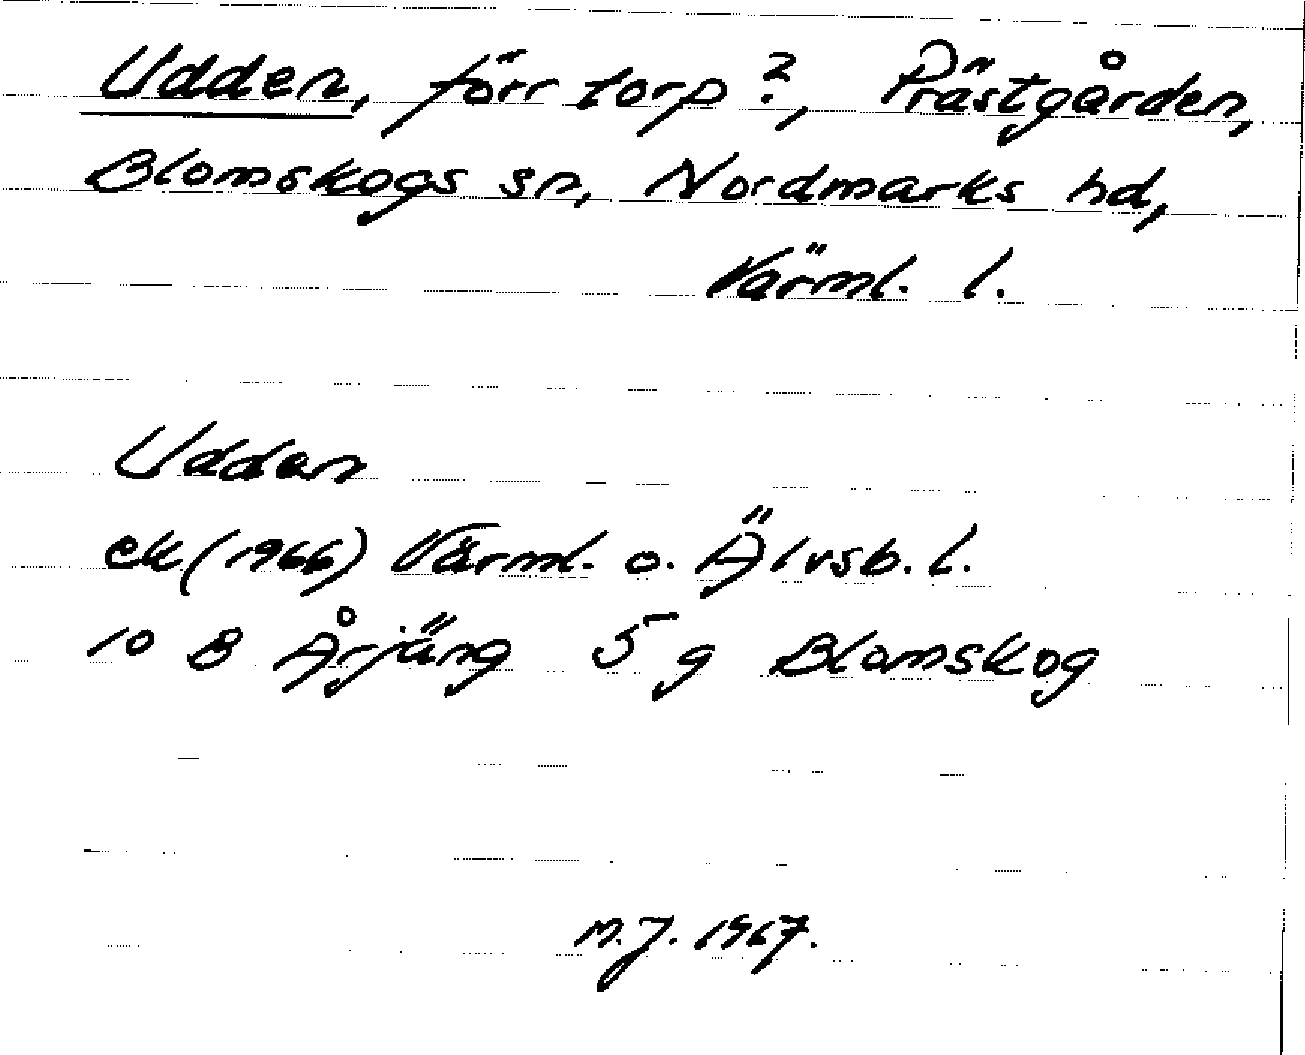 Udden, förr torp?, Prästgården,
Blomskogs sn, Nordmarks hd,
Värml. l.
Udden
ek (1966) Värml. o. Älvsb. l.
10 B Årjäng 5 g Blomskog
M.J. 1967.